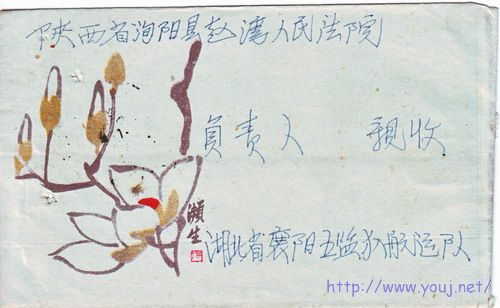 陕西省洵阳县赵湾人民法院
负责人 亲收
濒生
湖北省襄阳五监狱航运队
http://www.youj.net/